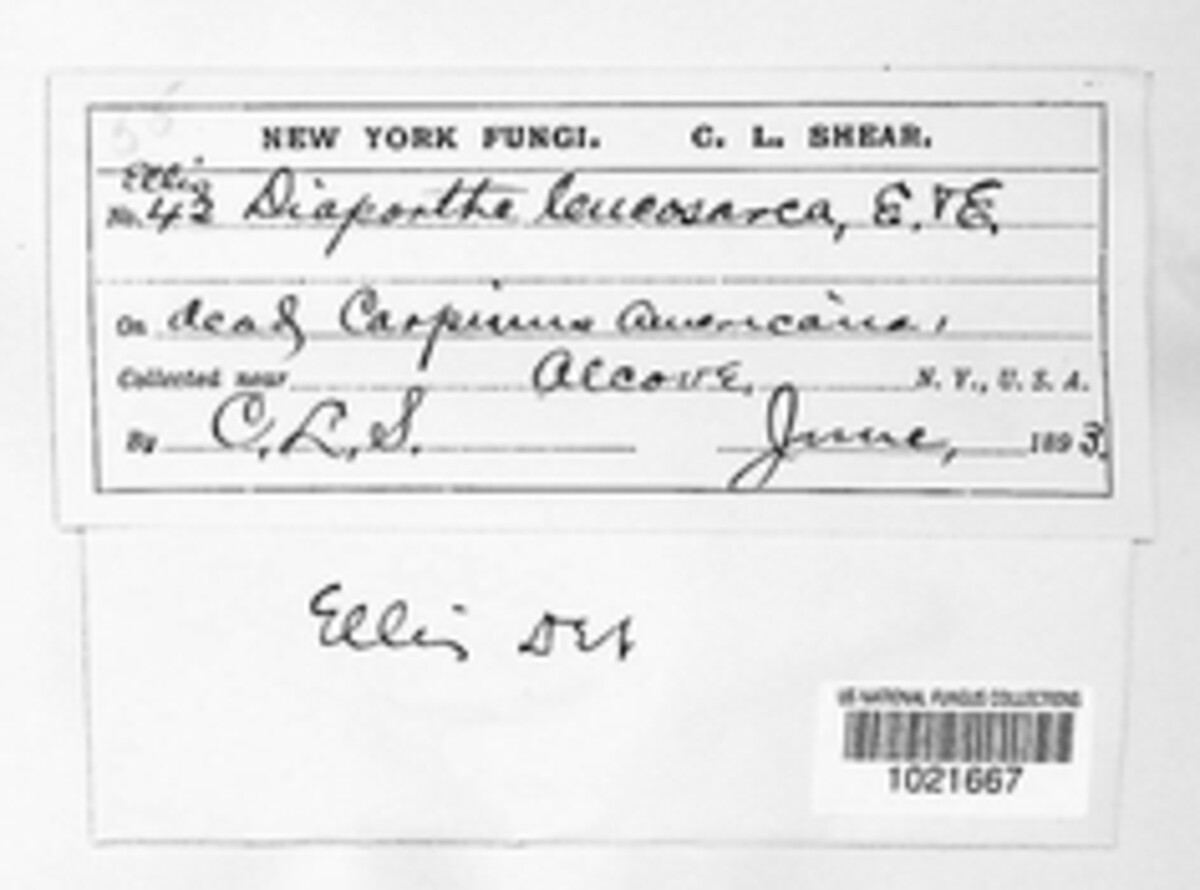 NEW YORK FUNGI. C. L. SHEAR.
Ellis
No. 42 Diaporthe leucosarca, E. & E.
On dead Carpinus Americana,
Collected near Alcove, N. Y., U. S. A.
By C. L. S. June, 1893.
Ellis Det
US NATIONAL FUNGUS COLLECTIONS
1021667